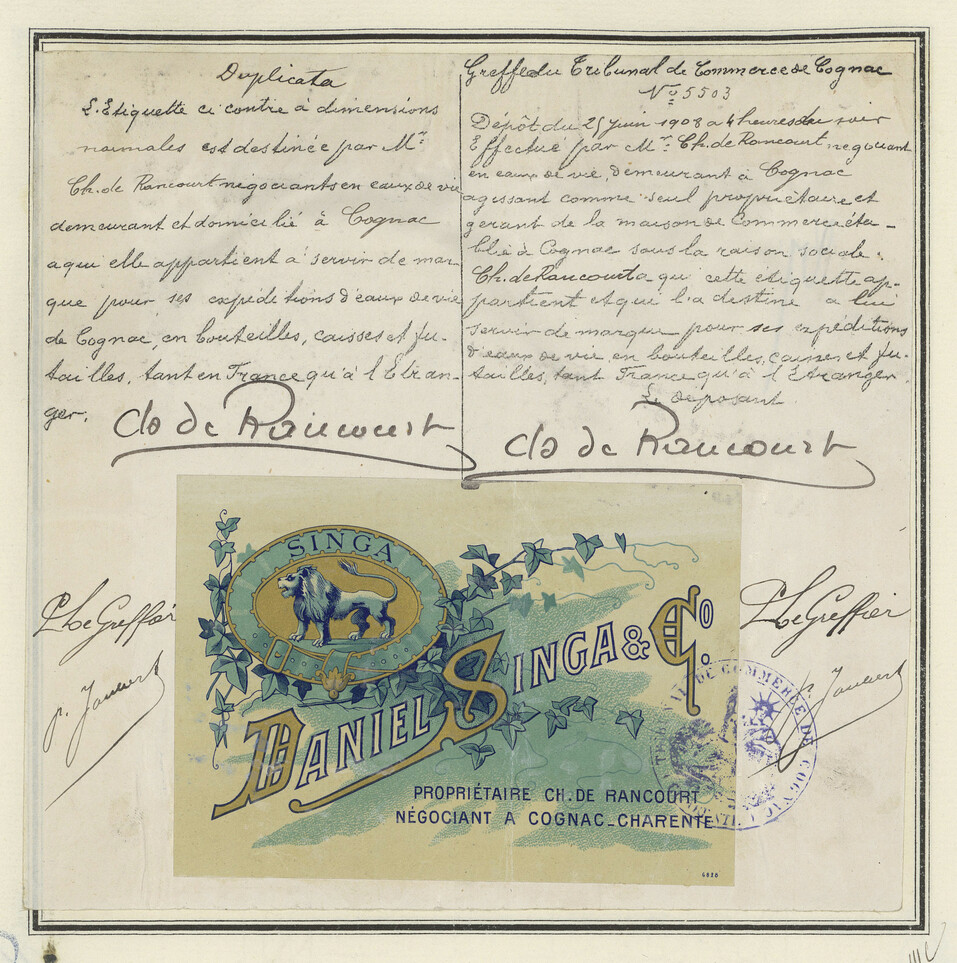 Duplicata
L'Etiquette ci contre à dimensions
normales est destinée par Mr
Ch. de Rancourt négociants en eaux de vie
demeurant et domicilié à Cognac
a qui elle appartient à servir de mar-
que pour ses expéditions d'eaux de vie
de Cognac, en bouteilles, caisses et fu-
tailles, tant en France qu'à l'Etran-
ger.
Ch de Rancourt
Greffe du Tribunal de Commerce de Cognac
No 5503
Dépôt du 25 juin 1908 a 4 heures du soir
Effectué par Mr Ch. de Rancourt négociant
en eaux de vie, demeurant à Cognac
agissant comme seul propriétaire et
gerant de la maison de Commerce éta-
blie à Cognac sous la raison sociale :
Ch. de Rancourt a qui cette étiquette ap-
partient et qui l'a destine a lui
servir de marque pour ses expéditions
d'eaux de vie, en bouteilles, caisses et fu-
tailles, tant France qu'à l'Etranger
Le deposant
Ch de Rancourt
SINGA
DANIEL SINGA & Co.
PROPRIÉTAIRE CH. DE RANCOURT
NÉGOCIANT A COGNAC_CHARENTE
6820
Le Greffier
p.
Le Greffier
p.
DE COMMERCE DE COGNAC